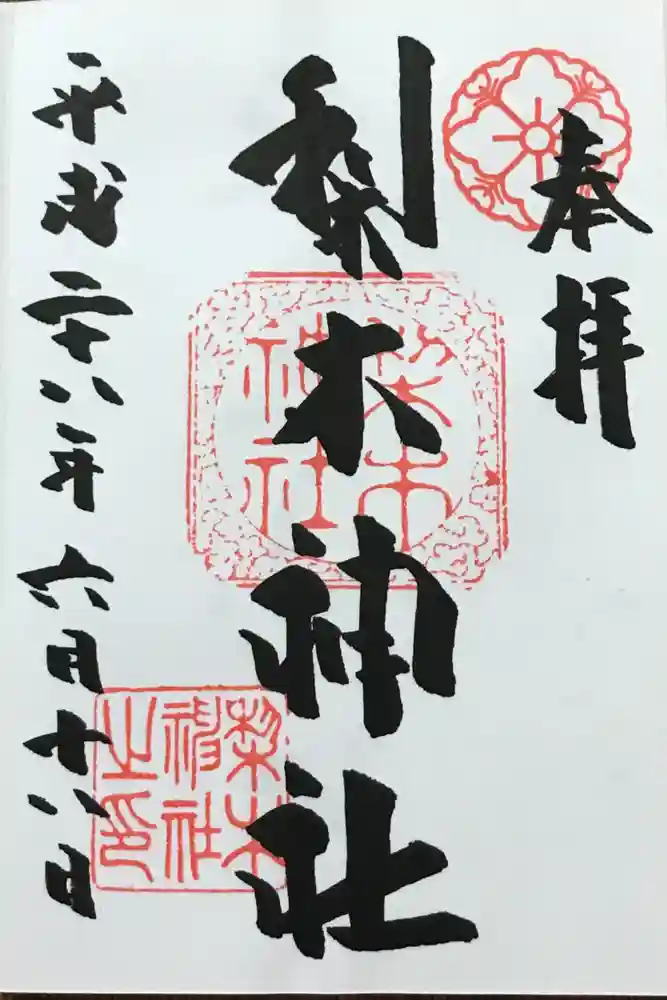 奉拝
梨木神社
平成二十八年六月十八日
梨木
神社
梨木
神社
之印